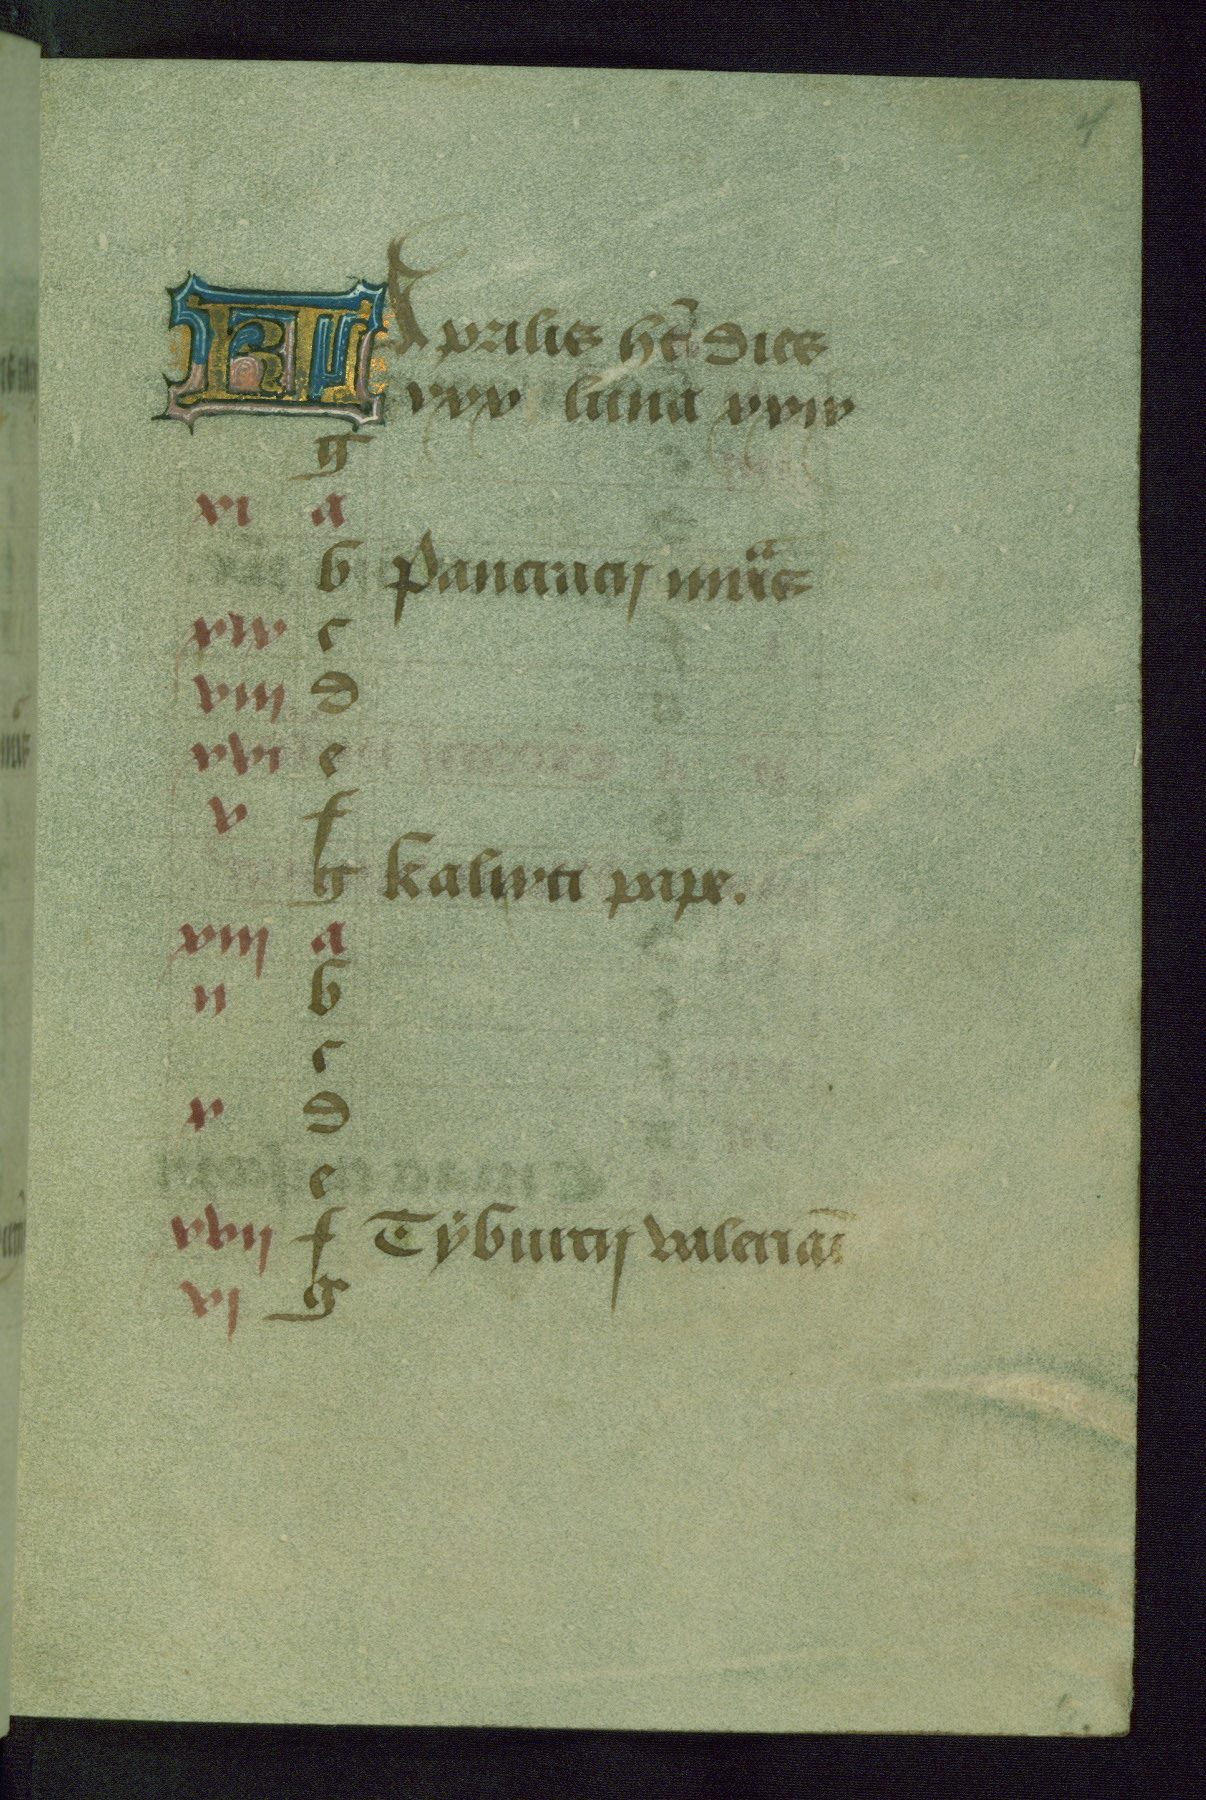 4
KL Aprilis hẽ dies
xxx luna xxix
g
xi a
b Pancracij mr̃is
xix c
viij d
xvi e
v f
g kalixti pape.
xiij a
ii b
c
x d
e
xvij f Tÿburcij valeriañ
vi g